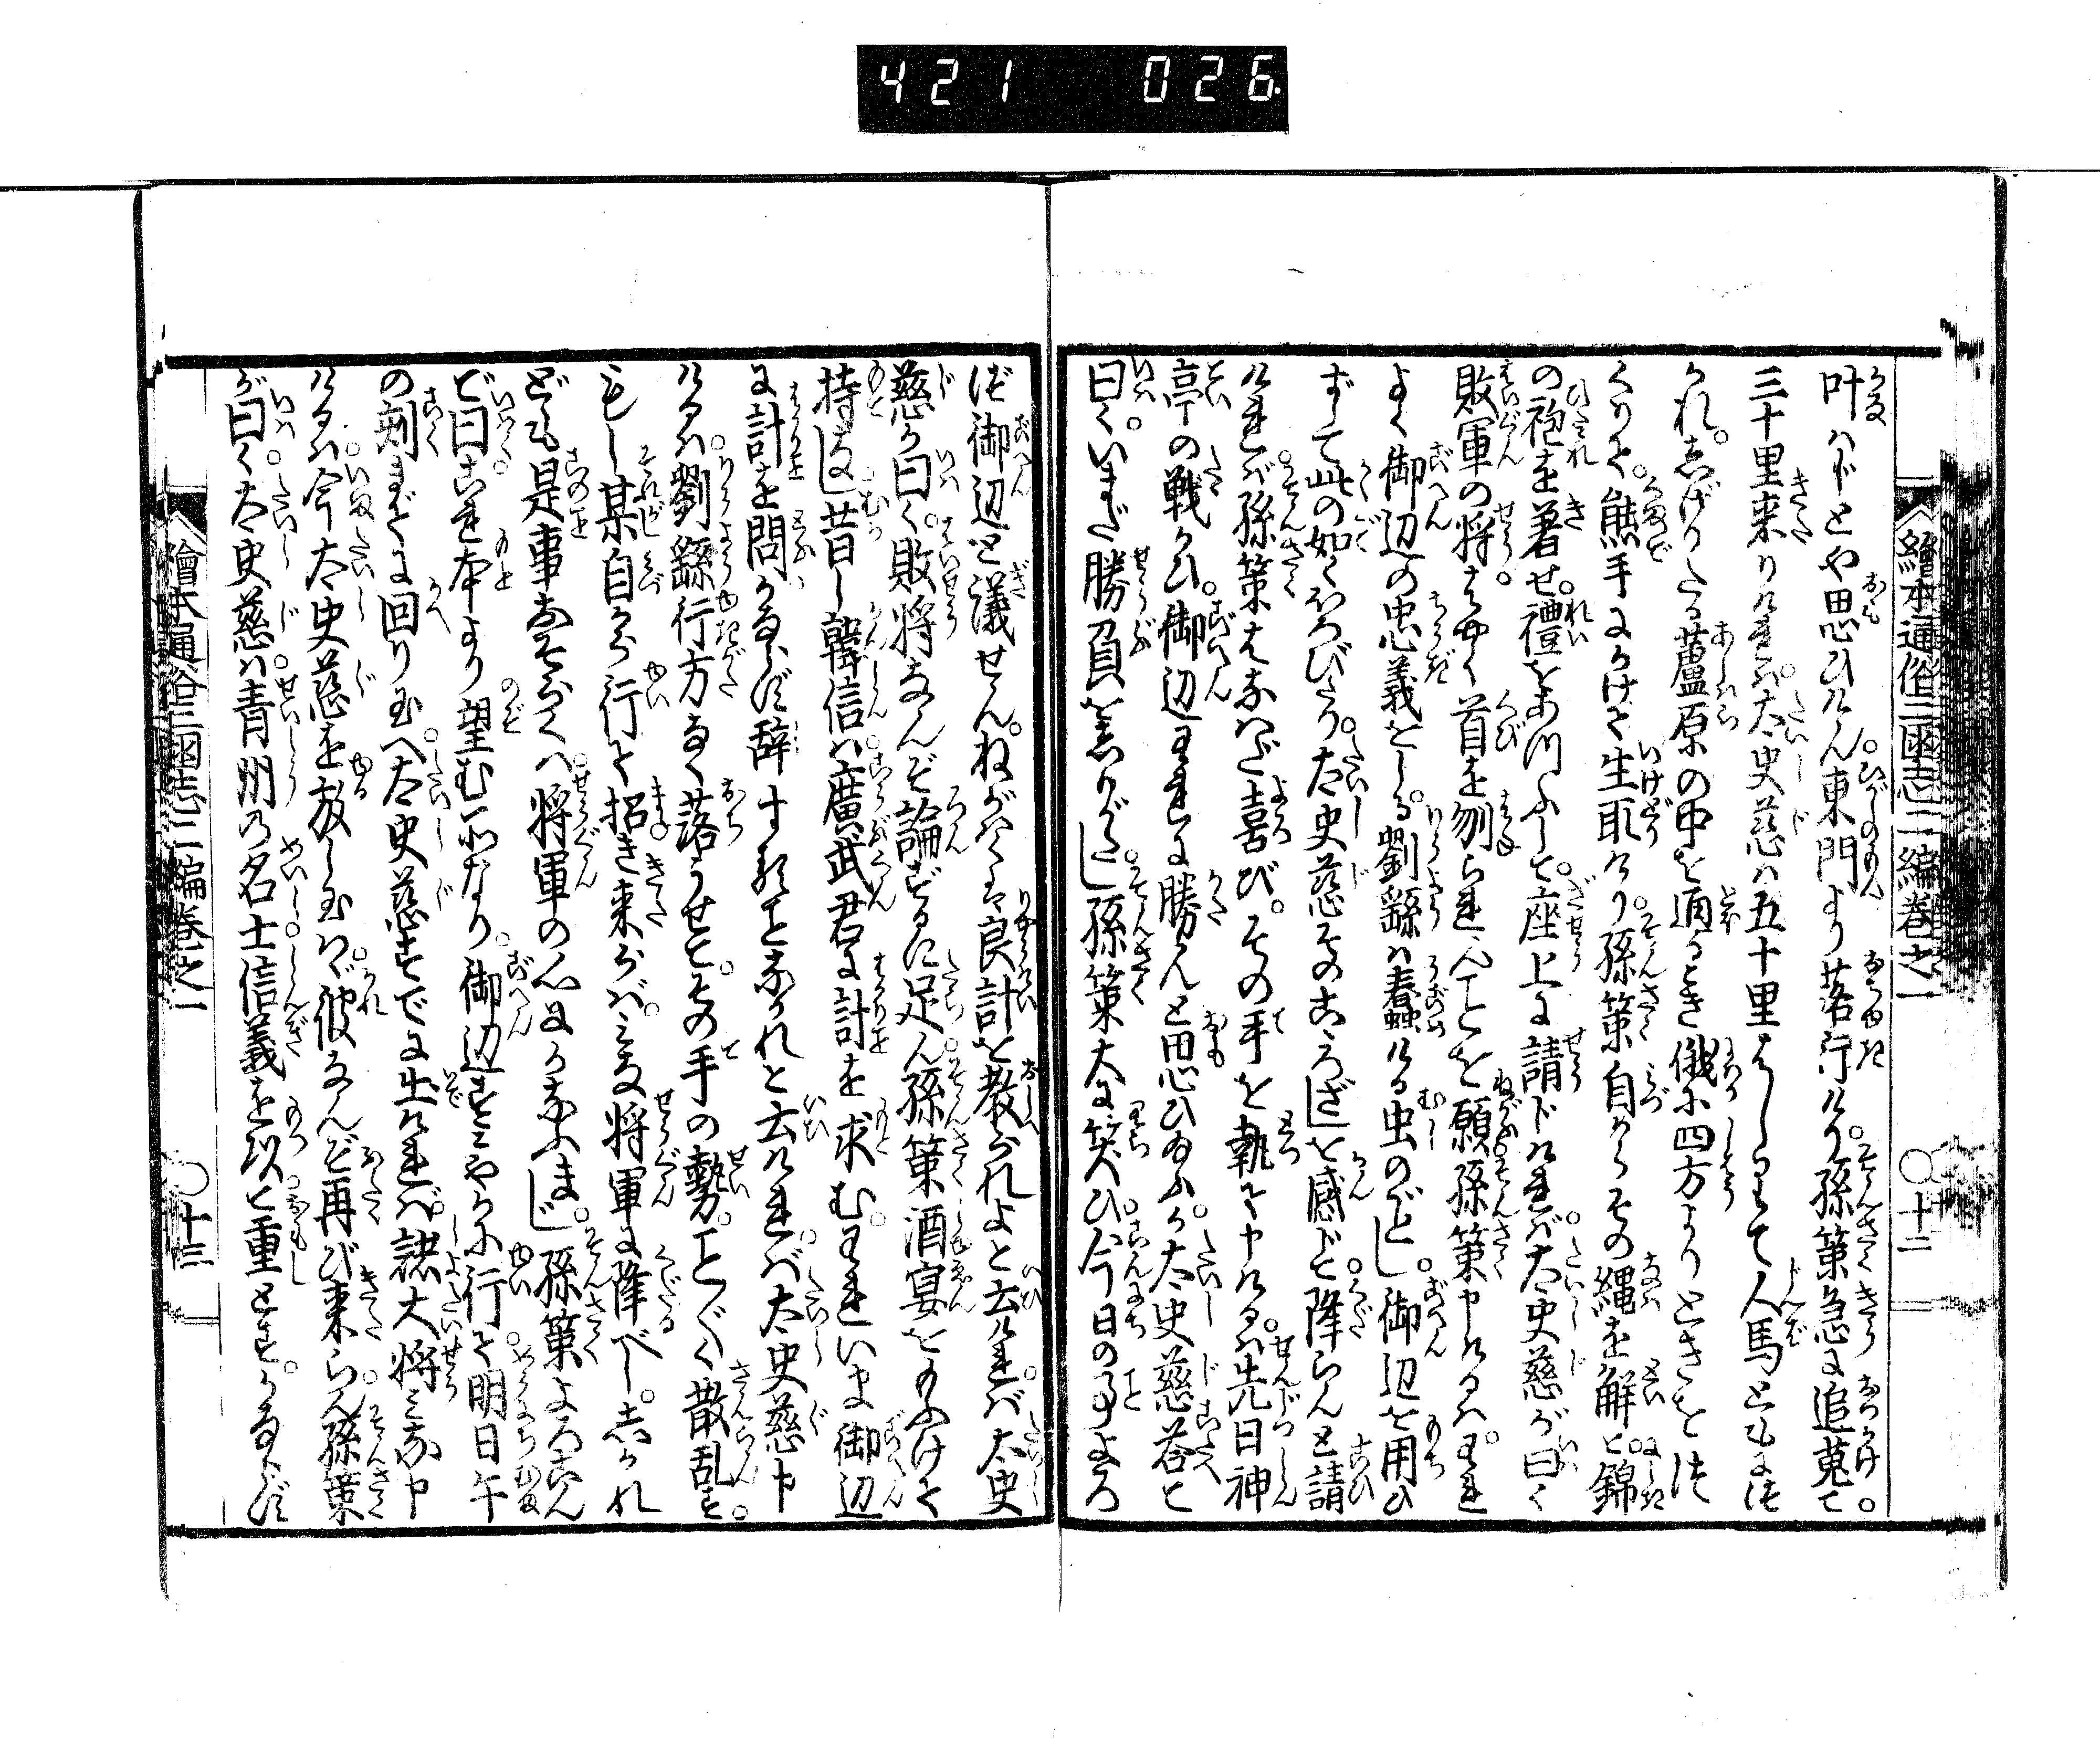 421 026
繪本通俗三國志二編卷之一 ○十二
叶はじとや思ひけん東門より落行けり。孫策急に追蒐て。
三十里来りければ。太史慈は五十里はしりて人馬ともにつ
かれ。しげりたる蘆原の中を通るとき俄に四方よりときをつ
くりて。熊手にかけて生取けり。孫策自からその縄を解て。錦
の袍を著せ。禮をあつふして。座上に請じければ。太史慈が曰く
敗軍の将はやく首を刎られんことを願。孫策申けるは。われ
よく御辺の忠義をしる。劉繇は蠢ける虫のごとし。御辺を用ひ
ずして此の如くほろびたり。太史慈その志ろざしを感じて。降らんと請
ければ孫策はなはだ喜び。その手を執て申けるは。先日神
亭の戦かひ。御辺われに勝んと思ひ給ふか。太史慈荅て
曰く。いまだ勝負を志りがたし。孫策大に笑ひ。今日の事よろ
づ御辺と議せん。ねがはくは良計を教られよと云ければ。太史
慈が曰く。敗将なんぞ論ずるに足ん。孫策酒宴をまふけて
持なし。昔し韓信は。廣武君に計を求む。われいま御辺
に計を問かならず辞することなかれと云ければ。太史慈申
けるは。劉繇行方なく落うせて。その手の勢。ことごとく散乱す。
もし某自から行て招き来らば。みな将軍に降べし。しかれ
ども是事おそらくは。将軍の心にかなふまじ。孫策よろこん
で曰。これ本より望む所なり。御辺すみやかに行て。明日午
の刻までに回り玉へ。太史慈すでに出ければ。諸大将みな申
けるは。今太史慈を放し玉はゞ。彼なんぞ再び来らん。孫策
が曰く。太史慈は。青州の名士。信義を以て重しとす。かならず
繪本通俗三國志二編卷之一 ○十三